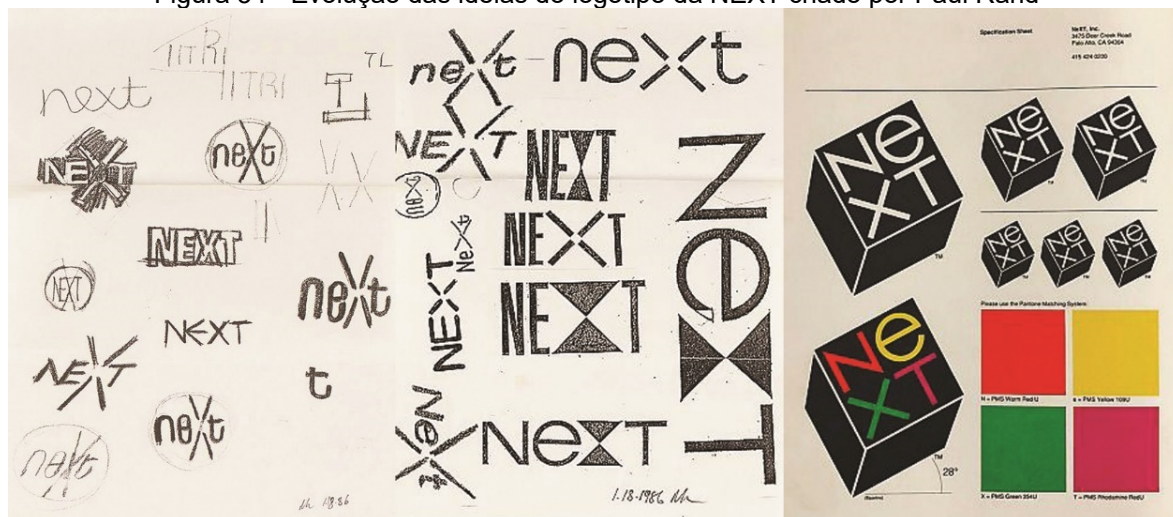 Figura - Evolução das ideias do logotipo da NEXT criado por Paul Rand
TITRI
TITRI
TL
next
NEXT
next
NEXT
NEXT
next
NEXT
NEXT
t
next
next
next
next
NEXT
NEXT
NEXT
NeXT
NEXT
NEXT
NEXT
NeXT
NeXT
NeXT
1-18-1986
Specification Sheet
NeXT, Inc.
3475 Deer Creek Road
Palo Alto, CA 94304
415 424 0200
NeXT
TM
NeXT
TM
NeXT
TM
NeXT
TM
NeXT
TM
NeXT
TM
Please use the Pantone Matching System:
NeXT
TM
28°
(Baseline)
N = PMS Warm Red U
e = PMS Yellow 109U
X = PMS Green 354U
T = PMS Rhodamine Red U